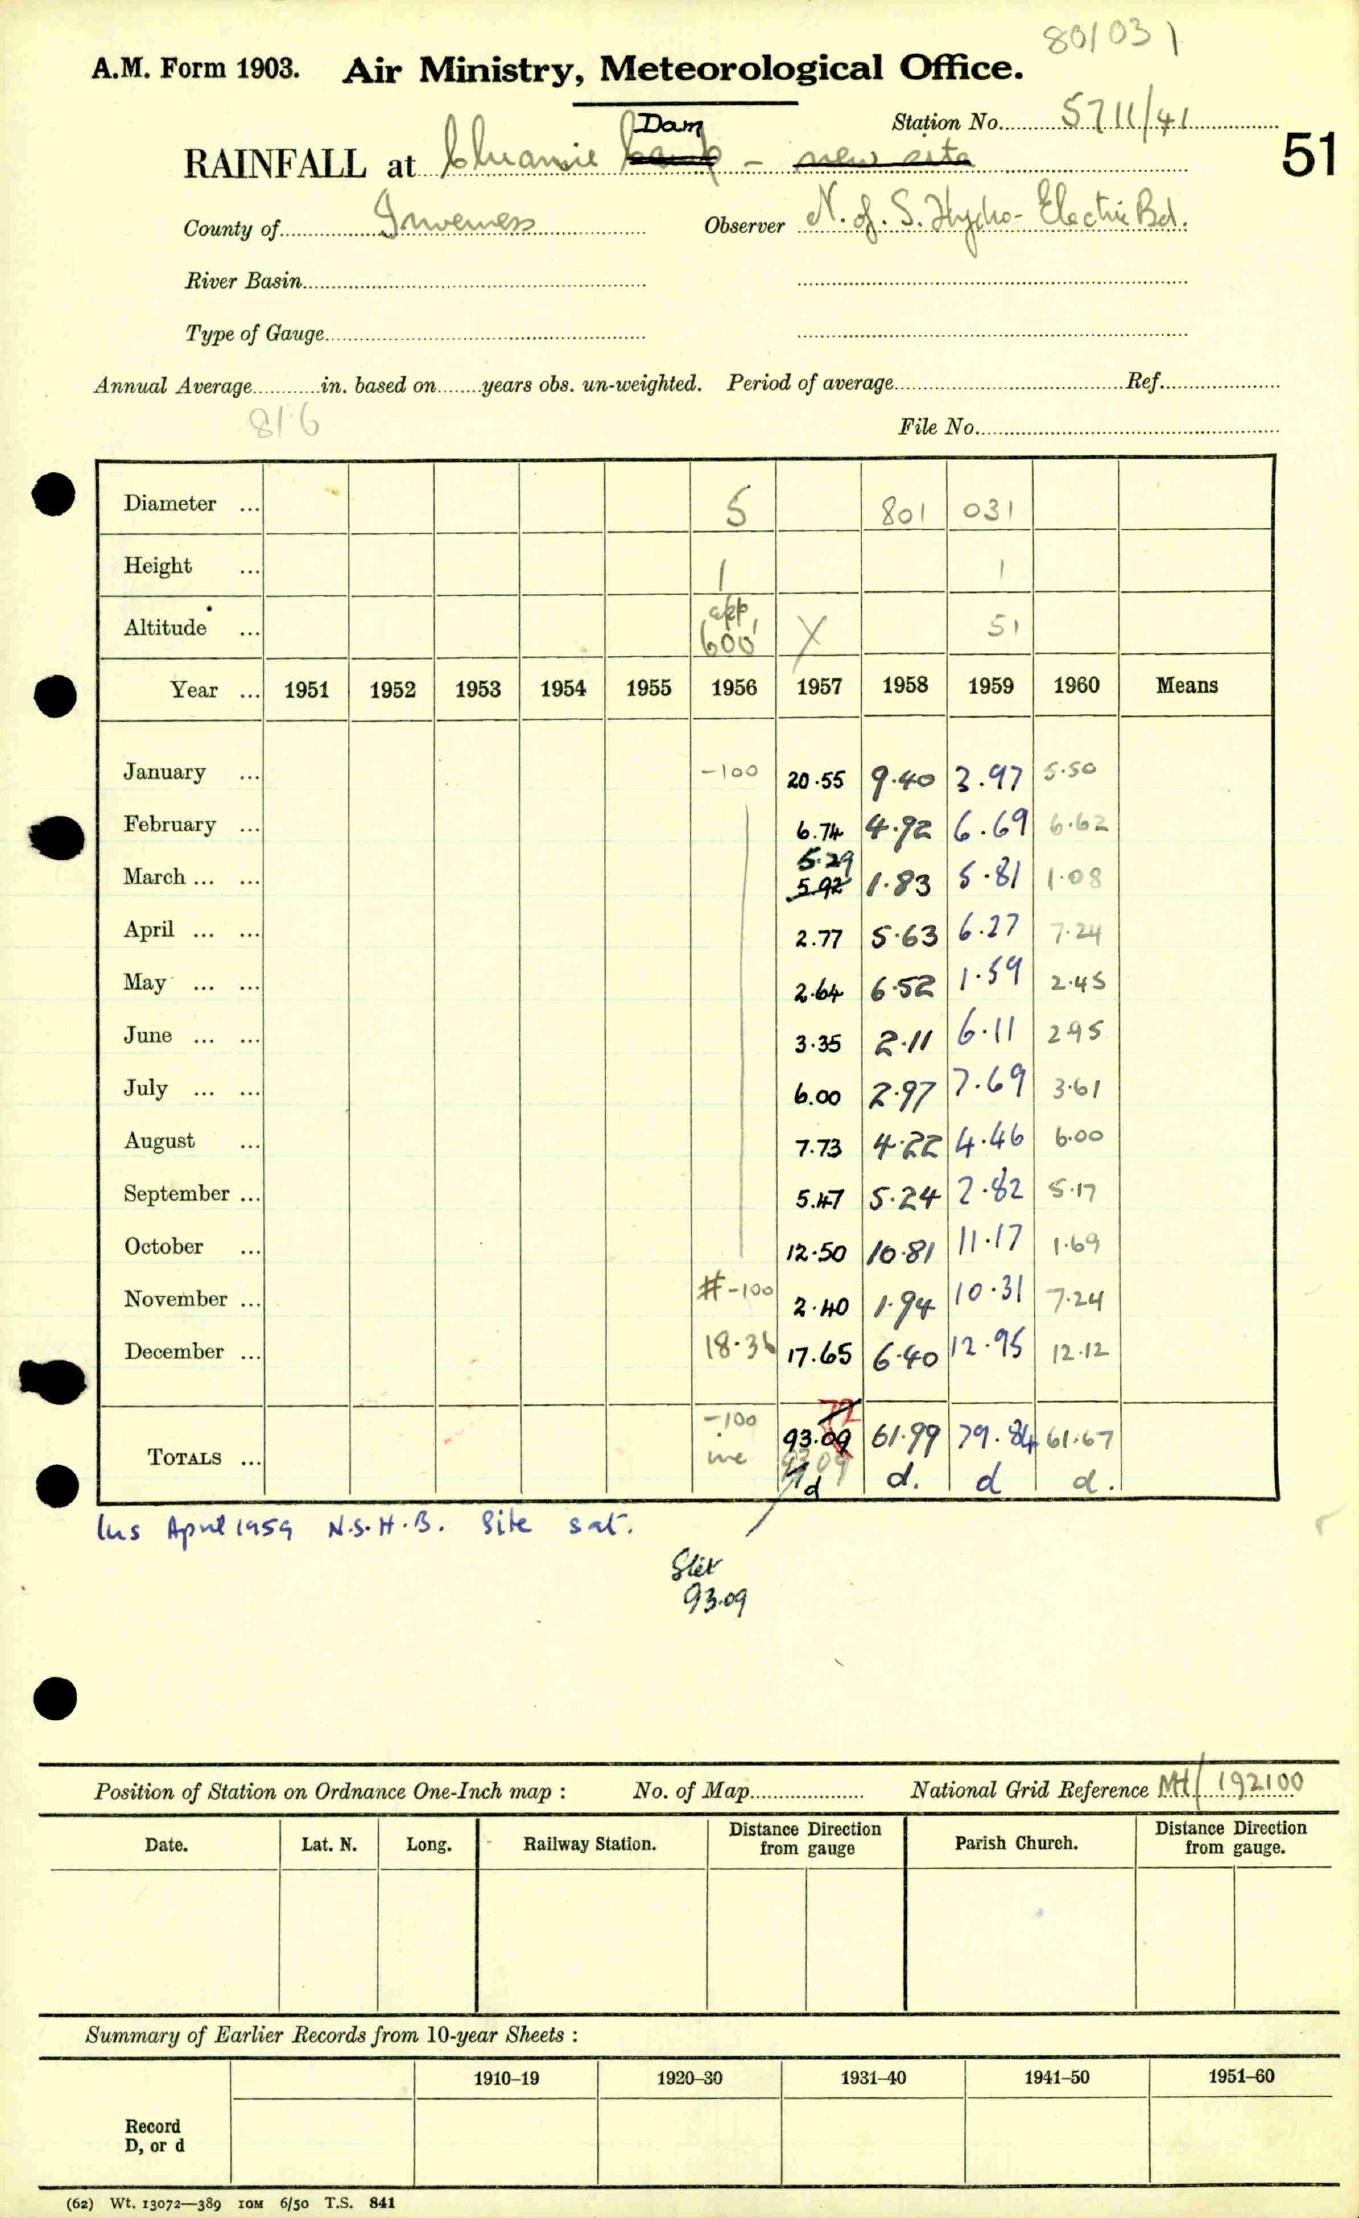 80/031
A.M. Form 1903. Air Ministry, Meteorological Office.
Station No. 5711/41
Dam
RAINFALL at Cluanie Camp – new site
51
County of Inverness Observer N. of S. Hydro-Electric Bd.
River Basin
Type of Gauge
Annual Average in. based on years obs. un-weighted. Period of average Ref.
81·6
File No.
Diameter ... 5 801 031
Height ... 1 1
Altitude ... app. 600' X 51
Year ... 1951 1952 1953 1954 1955 1956 1957 1958 1959 1960 Means
January ... -100 20.55 9.40 3.97 5.50
February ... 6.74 4.92 6.69 6.62
5.29
March ... ... 5.92 1.83 5.81 1.08
April ... ... 2.77 5.63 6.27 7.24
May ... ... 2.64 6.52 1.59 2.45
June ... ... 3.35 2.11 6.11 2.95
July ... ... 6.00 2.97 7.69 3.61
August ... 7.73 4.22 4.46 6.00
September ... 5.47 5.24 2.82 5.17
October ... 12.50 10.81 11.17 1.69
November ... # -100 2.40 1.94 10.31 7.24
December ... 18.36 17.65 6.40 12.95 12.12
72
-100 93.09 61.99 79.84 61.67
TOTALS ... inc 93.09 d d. d d.
Ins April 1959 N.S.H.B. Site sat.
93.09
Position of Station on Ordnance One-Inch map : No. of Map National Grid Reference MH/192100
Date. Lat. N. Long. Railway Station. Distance Direction from gauge Parish Church. Distance Direction from gauge.
Summary of Earlier Records from 10-year Sheets :
1910–19 1920–30 1931–40 1941–50 1951–60
Record
D, or d
(62) Wt. 13072—389 10M 6/50 T.S. 841